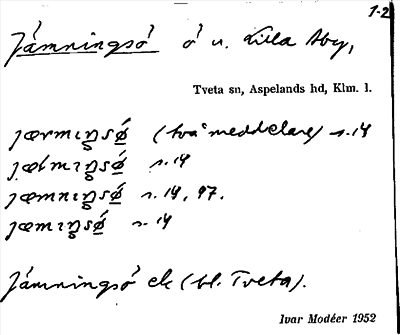 1-2
Jämningsö ö u. Lilla Aby,
Tveta sn, Aspelands hd, Klm. l.
jærmıŋsö́ (två meddelare) s. 14
jæłmıŋsö́ s. 14
jæmnıŋsö́ s. 14, 97.
jæmıŋsö́ s. 14
Jämningsö ek (bl. Tveta).
Ivar Modéer 1952